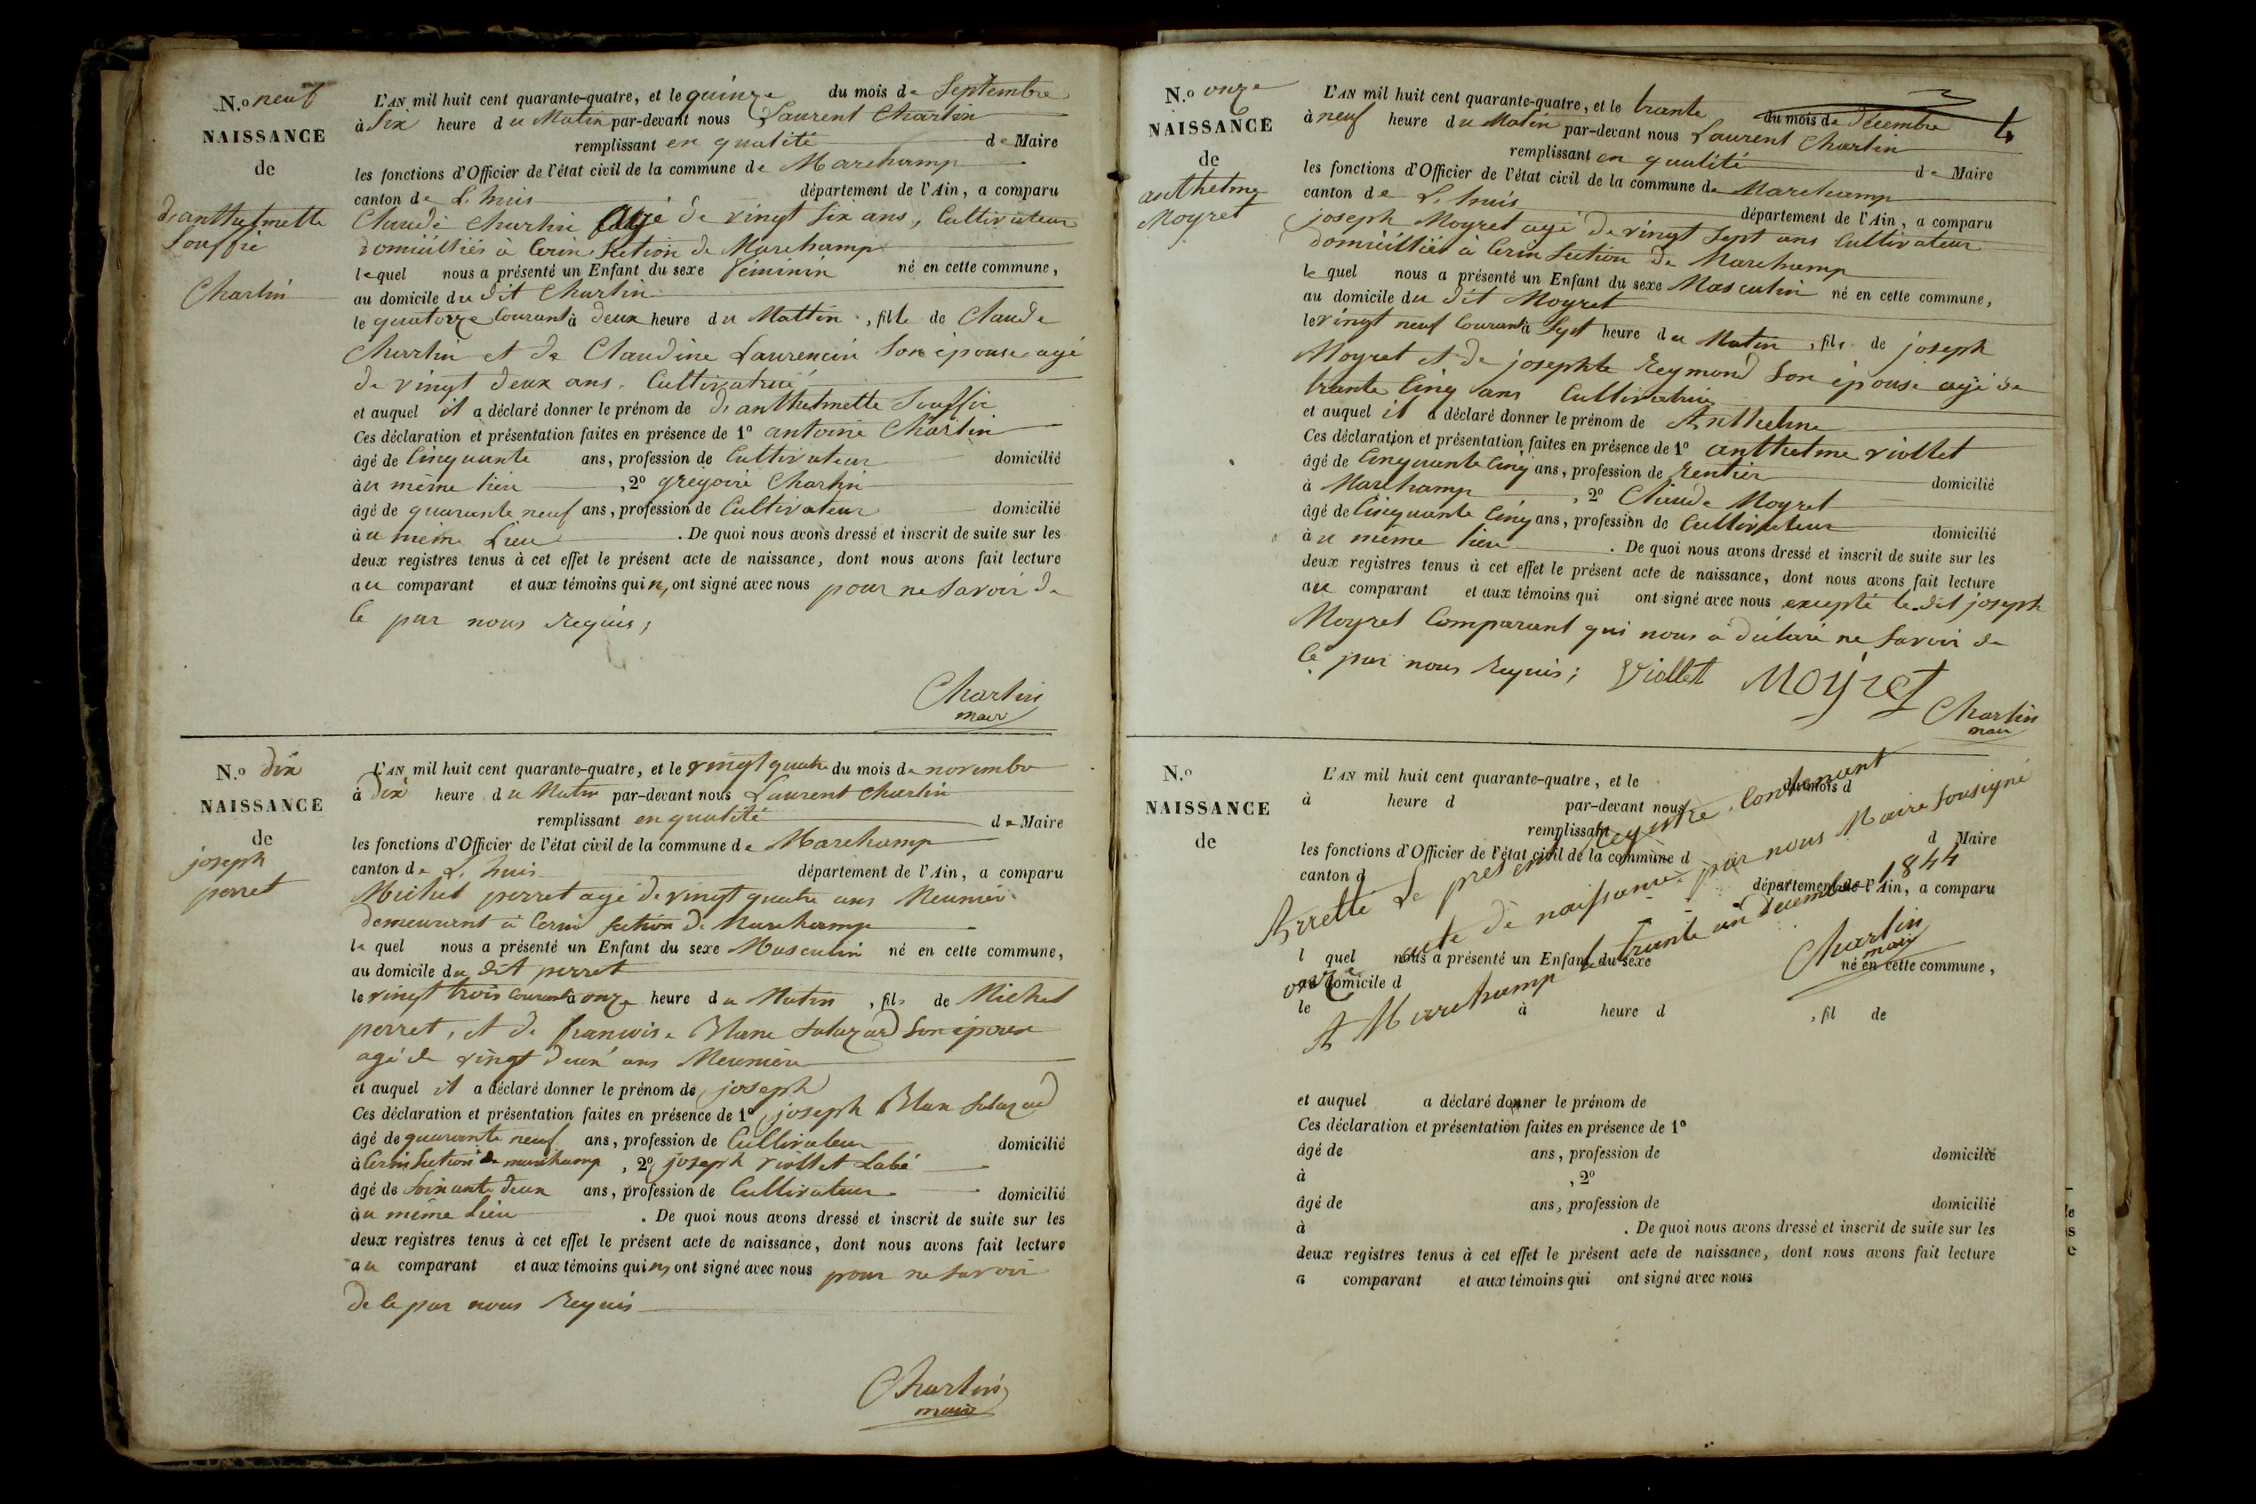 N.o neuf
NAISSANCE
de
d'anthelmette
Souffie
Charlin
L'AN mil huit cent quarante-quatre, et le quinze du mois de Septembre
à Six heure du Matin par-devant nous Laurent Charlin
remplissant en qualité de Maire
les fonctions d'Officier de l'état civil de la commune de Marchamp
canton de L'huis département de l'Ain, a comparu
Claude Charlin agé de vingt six ans, Cultivateur
domicilliés à Cerin Section de Marchamp
lequel nous a présenté un Enfant du sexe féminin né en cette commune,
au domicile du dit Charlin
le quatorze Courant à deux heure du Mattin, fille de Claude
Charlin et de Claudine Laurencin Son épouse agé
de vingt deux ans. Cultivatrice
et auquel il a déclaré donner le prénom de d'anthelmette Souffie
Ces déclaration et présentation faites en présence de 1o antoine Charlin
âgé de Cinquante ans, profession de Cultivateur domicilié
à u même lieu, 2o gregoire Charlin
âgé de quarante neuf ans, profession de Cultivateur domicilié
à u même Lieu. De quoi nous avons dressé et inscrit de suite sur les
deux registres tenus à cet effet le présent acte de naissance, dont nous avons fait lecture
au comparant et aux témoins qui n'ont signé avec nous pour ne Savoir de
Ce par nous Requis;
Charlin
maire
N.o dix
NAISSANCE
de
joseph
perret
L'AN mil huit cent quarante-quatre, et le vingt quatre du mois de novembre
à dix heure du Matin par-devant nous Laurent Charlin
remplissant en qualité de Maire
les fonctions d'Officier de l'état civil de la commune de Marchamp
canton de L'huis département de l'Ain, a comparu
Michel perret agé de vingt quatre ans Meunier
demeurant à Cerin Section de Marchamp
le quel nous a présenté un Enfant du sexe Masculin né en cette commune,
au domicile du dit perret
le vingt trois Courant à onze heure du Matin, fils de Michel
perret, et de francoise Blanc Salazard Son épouse
agé de vingt deux ans Meunière
et auquel il a déclaré donner le prénom de joseph
Ces déclaration et présentation faites en présence de 1o joseph Blan Salazard
âgé de quarante neuf ans, profession de Cultivateur domicilié
à Cerin Section de marchamp, 2o joseph viollet Labé
âgé de Soixante deux ans, profession de Cultivateur domicilié
à u même Lieu. De quoi nous avons dressé et inscrit de suite sur les
deux registres tenus à cet effet le présent acte de naissance, dont nous avons fait lecture
au comparant et aux témoins qui n'ont signé avec nous pour ne Savoir
de Ce par nous Requis
Charlin
maire
N.o onze
NAISSANCE
de
anthelme
Moyret
L'AN mil huit cent quarante-quatre, et le trante du mois de décembre 4
à neuf heure du Matin par-devant nous Laurent Charlin
remplissant en qualité de Maire
les fonctions d'Officier de l'état civil de la commune de Marchamp
canton de L'huis département de l'Ain, a comparu
joseph Moyret agé de vingt Sept ans Cultivateur
domicilliés à Cerin Section de Marchamp
le quel nous a présenté un Enfant du sexe Masculin né en cette commune,
au domicile du dit Moyret
le vingt neuf Courant à Sept heure du Matin, fils de joseph
Moyret et de josephte Reymond Son épouse agé de
trante Cinq ans Cultivatrice
et auquel il a déclaré donner le prénom de Anthelme
Ces déclaration et présentation faites en présence de 1o anthelme viollet
âgé de Cinquante Cinq ans, profession de Rentier domicilié
à Marchamp, 2o Claude Moyret
âgé de Cinquante Cinq ans, profession de Cultivateur domicilié
à u même lieu. De quoi nous avons dressé et inscrit de suite sur les
deux registres tenus à cet effet le présent acte de naissance, dont nous avons fait lecture
au comparant et aux témoins qui ont signé avec nous excepté le dit joseph
Moyret Comparant qui nous a déclaré ne Savoir de
Ce par nous Requis; Viollet Moyret
Charlin
maire
N.o
NAISSANCE
de
L'AN mil huit cent quarante-quatre, et le du mois d
à heure d par-devant nous
remplissant d Maire
les fonctions d'Officier de l'état civil de la commune d
canton d département de l'Ain, a comparu
Arretté Le présent Registre Contenant
onze acte de naissance par nous Maire Sousigné
A Marchamp le trante un decembre 1844
Charlin
maire
l quel nous a présenté un Enfant du sexe né en cette commune,
au domicile d
le à heure d, fil de
et auquel a déclaré donner le prénom de
Ces déclaration et présentation faites en présence de 1o
âgé de ans, profession de domicilié
à, 2o
âgé de ans, profession de domicilié
à. De quoi nous avons dressé et inscrit de suite sur les
deux registres tenus à cet effet le présent acte de naissance, dont nous avons fait lecture
a comparant et aux témoins qui ont signé avec nous